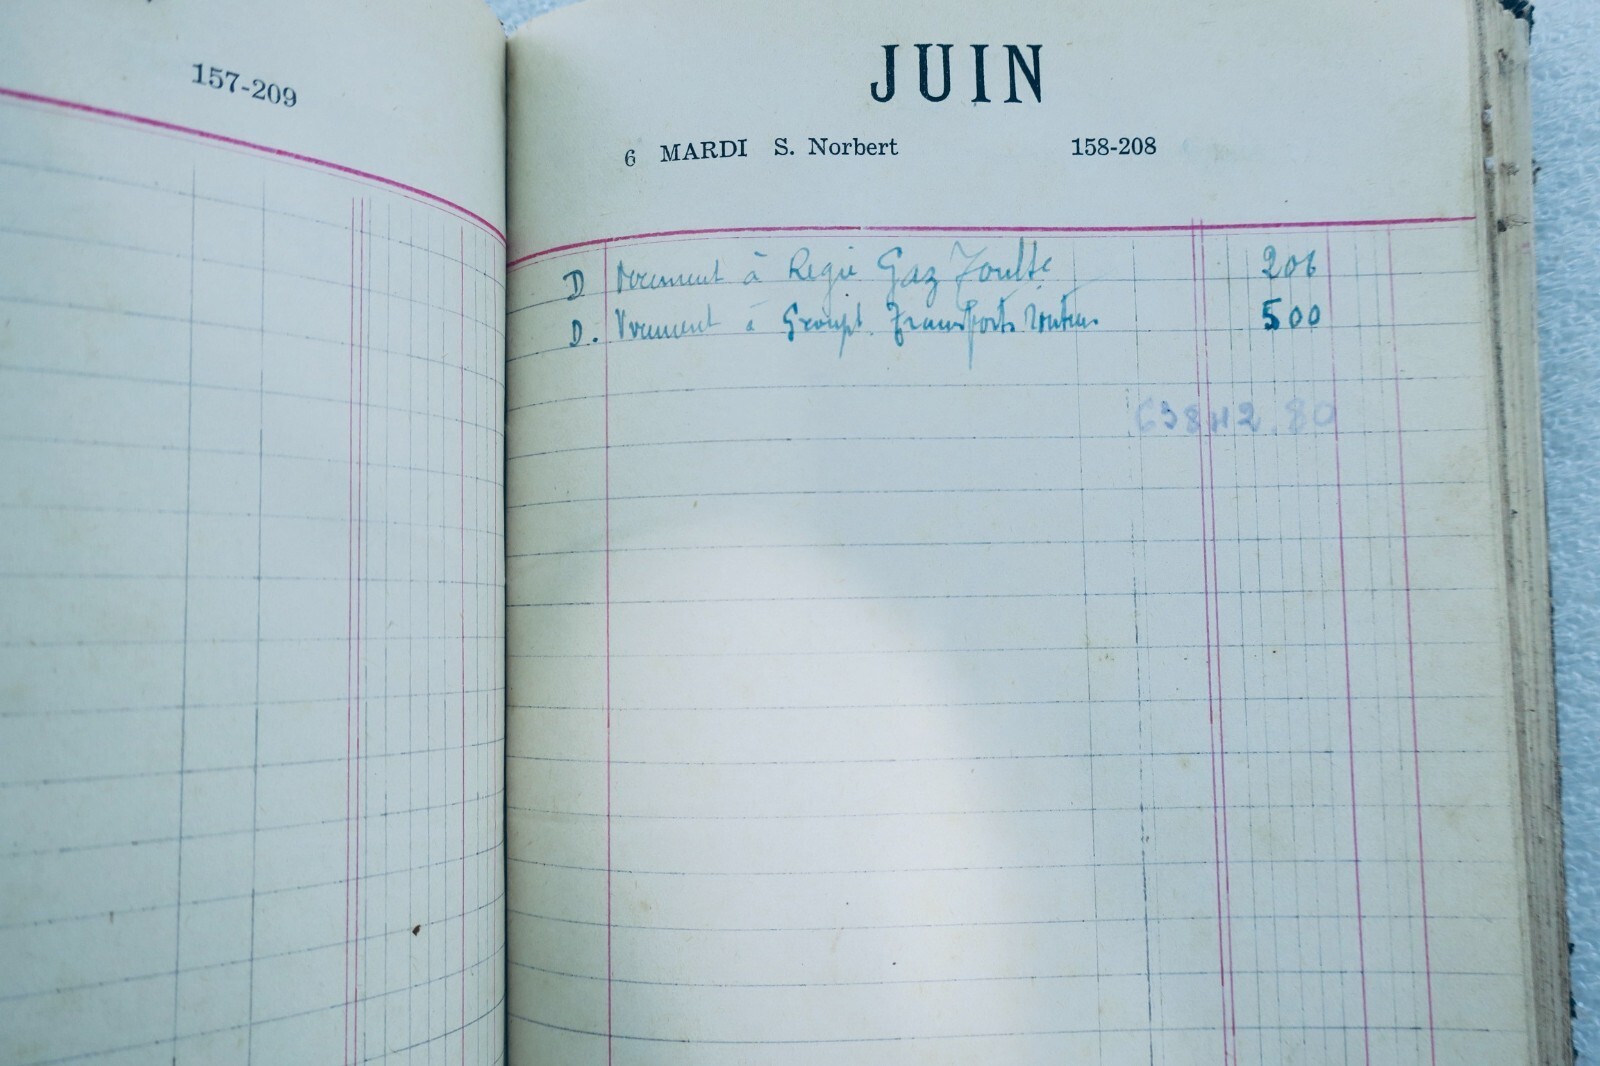 157-209
JUIN
6 MARDI S. Norbert 158-208
D Virement à Régie Gaz 206
D. Virement à Groupt Transports routiers 500
63842.80